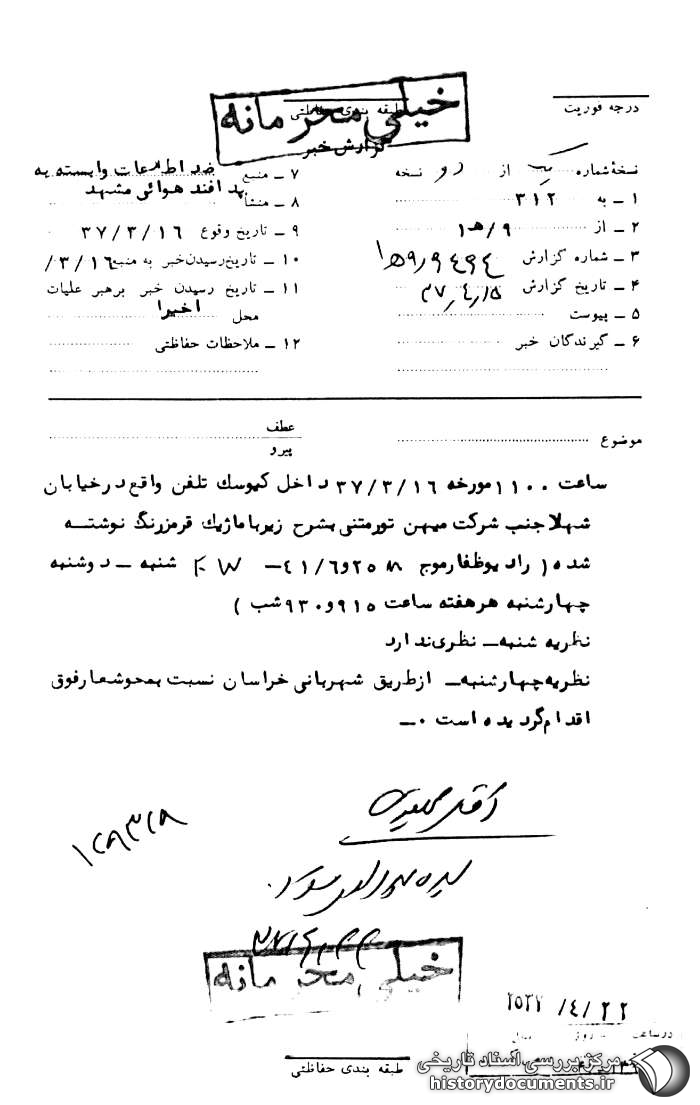 خیلی محرمانه
درجه فوریت
طبقه بندی حفاظتی
گزارش خبر
نسخهٔ شماره یک از دو نسخه
۱ ـ به ۳۱۲
۲ ـ از ۹/ه۱
۳ ـ شماره گزارش
۴ ـ تاریخ گزارش ۳۷/۴/۱۵
۵ ـ پیوست
۶ ـ گیرندگان خبر
۷ ـ منبع ضد اطلاعات وابسته به
۸ ـ منشأ پدافند هوائی مشهد
۹ ـ تاریخ وقوع ۳۷/۳/۱۶
۱۰ ـ تاریخ رسیدن خبر به منبع ۳/۱۶/
۱۱ ـ تاریخ رسیدن خبر برهبر عملیات
محل اخیرا
۱۲ ـ ملاحظات حفاظتی
موضوع
عطف
پیرو
ساعت ۱۱۰۰ مورخه ۳۷/۳/۱۶ داخل کیوسک تلفن واقع در خیابان
شهلا جنب شرکت میهن تور متنی بشرح زیر با ماژیک قرمز رنگ نوشته
شده ( رادیو ظفار موج ۲۵۸ و ۴۱/۶ ـ شنبه ـ دوشنبه
چهارشنبه هر هفته ساعت ۹۱۵ و ۹۳۰ شب )
نظریه شنبه ـ نظری ندارد
نظریه چهارشنبه ـ از طریق شهربانی خراسان نسبت بمحو شعار فوق
اقدام گردیده است ۰ ـ
۱۲۸۳۲۸
خیلی محرمانه
۲۵۳۷/۴/۲۲
در ساعت روز
طبقه بندی حفاظتی
مرکز بررسی اسناد تاریخی
historydocuments.ir